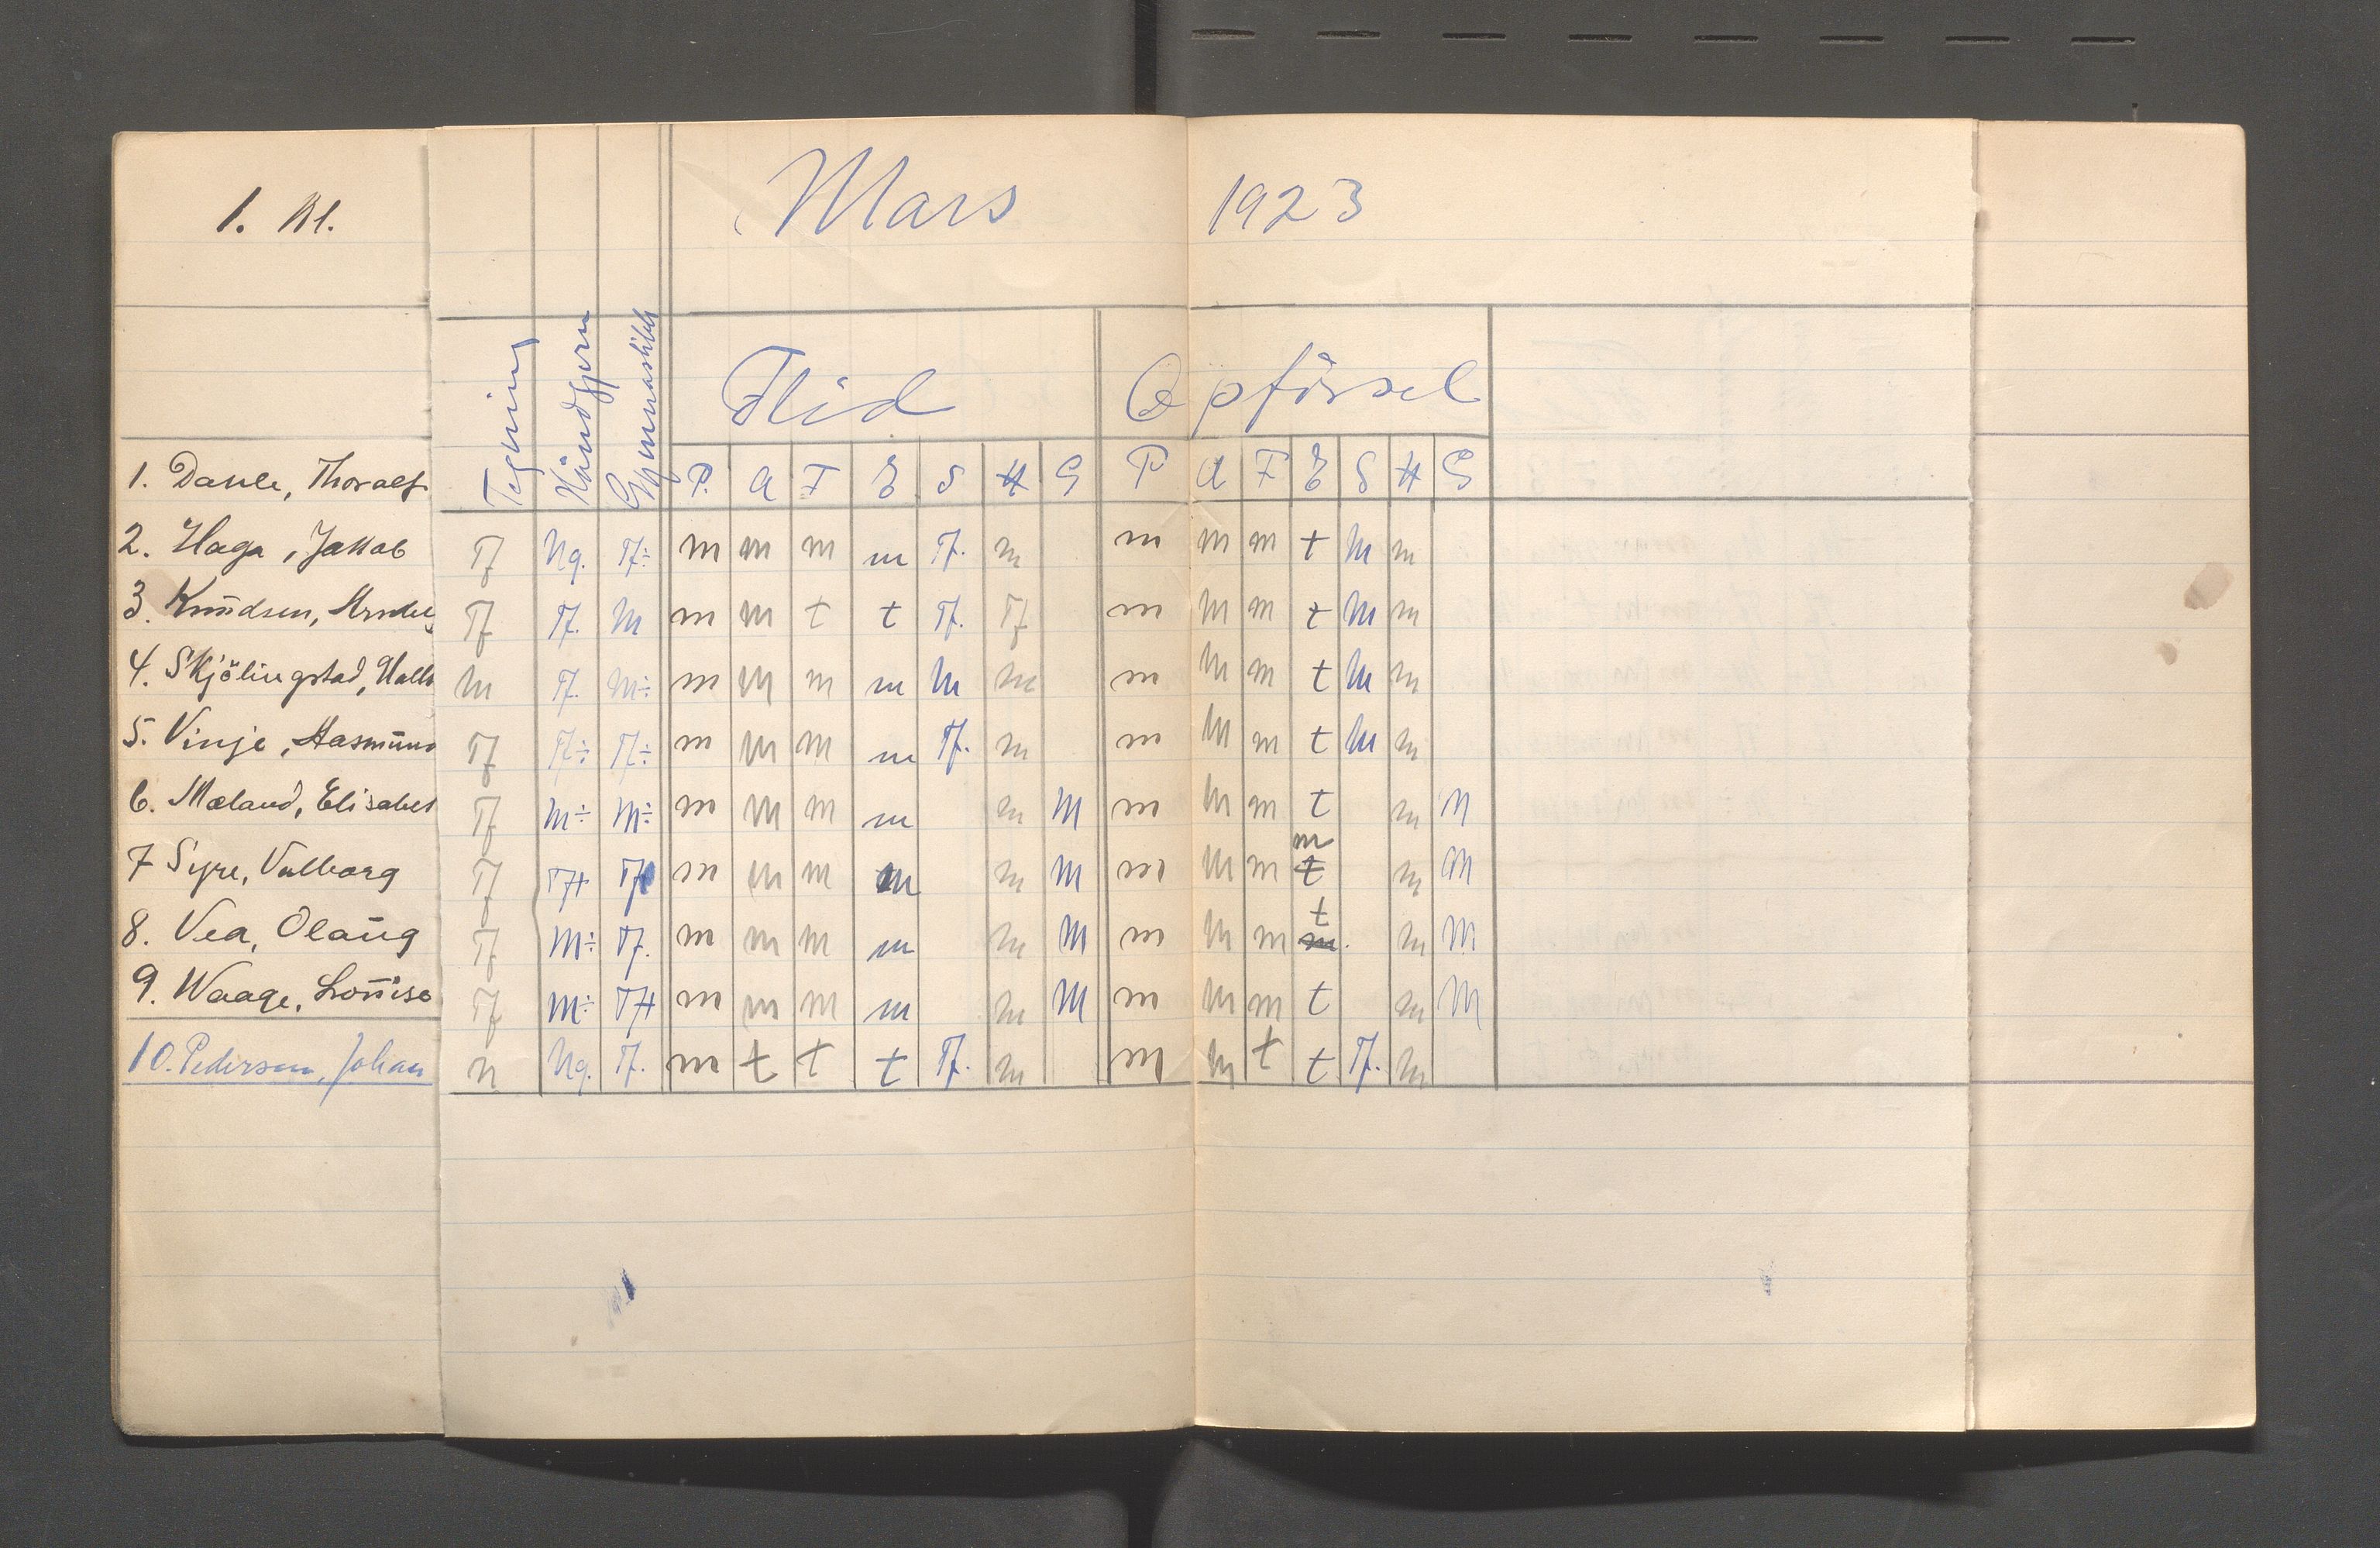 1. Kl.
Mars 1923
Tegning Håndgjern Gymnastikk
Flid Opförsel
P. A F E S H G P A F E S H G
1. Danle, Thoralf
2. Haga, Jakob Tf Ng. Tf÷ m m m m Tf. m m m m t M m
3. Knudsen, Arnde Tf Tf. M m m t t Tf. Tf m m m t M m
4. Skjölingstad, Halb M Tf. M÷ m m m m M m m m m t M m
5. Vinje, Aasmund Tf Tf÷ Tf÷ m m m m Tf. m m m m t M m
6. Mæland, Elisabet Tf M÷ M÷ m m m m m M m m m t m M
7 Syre, Valborg Tf Tf+ Tf m m m m m M m m m m t m M
8. Vea, Olaug Tf M÷ Tf. m m m m m M m m m t m. m M
9. Waage, Louise Tf M÷ Tf+ m m m m m M m m m t m M
10. Pedersen, Johan n Ng. Tf. m t t t Tf. m m m t t Tf. m